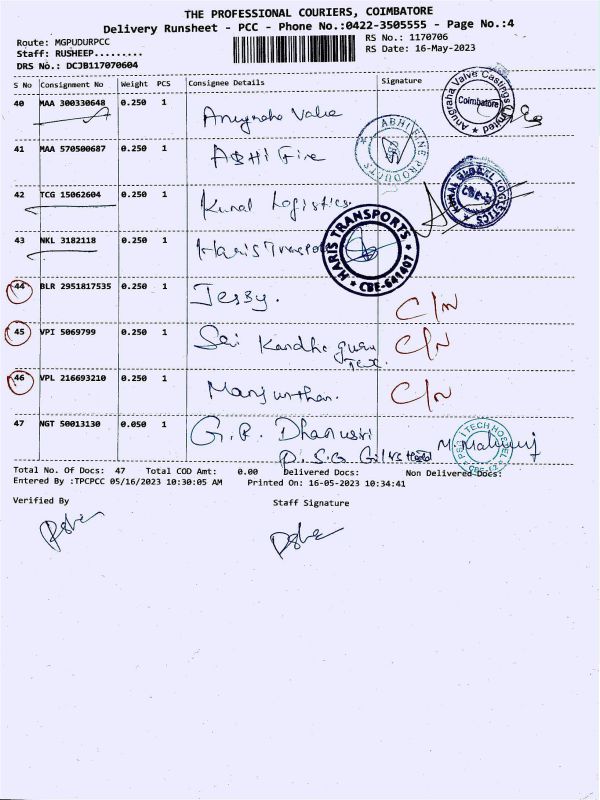 THE PROFESSIONAL COURIERS, COIMBATORE
Delivery Runsheet - PCC - Phone No.:0422-3505555 - Page No.:4
Route: MGPUDURPCC
RS No.: 1170706
Staff: RUSHEEP.........
RS Date: 16-May-2023
DRS No.: DCJB117070604
S No Consignment No Weight PCS Consignee Details Signature
40 MAA 300330648 0.250 1 Anugraha Valve
Anugraha Valve Castings Limited Coimbatore
41 MAA 570500687 0.250 1 ABHI Fire
ABHI FIRE PRODUCTS CBE
42 TCG 15062604 0.250 1 Kunal Logistics.
KUNAL GLOBAL LOGISTICS CBE
43 NKL 3182118 0.250 1 Haris Transports
HARIS TRANSPORTS CBE-641407
44 BLR 2951817535 0.250 1 Jessy. C/N
45 VPI 5069799 0.250 1 Sai Kandha guru C/N
Tex.
46 VPL 216693210 0.250 1 C/N
47 NGT 50013130 0.050 1 G.R. Dhanusri
P.S.G
TECH HOSTEL
Total No. Of Docs: 47 Total COD Amt: 0.00 Delivered Docs: Non Delivered Docs:
Entered By :TPCPCC 05/16/2023 10:30:05 AM Printed On: 16-05-2023 10:34:41
Verified By Staff Signature